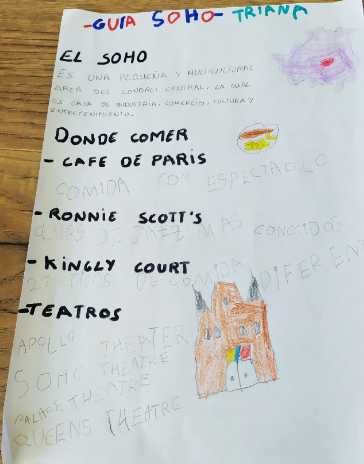 -GUIA SOHO- TRIANA
EL SOHO
ES UNA PEQUEÑA Y MULTICULTURAL
AREA DEL LONDRES CENTRAL, LA CUAL
ES CASA DE INDUSTRIA, COMERCIO, CULTURA Y
ENTRETENIMIENTO.
DONDE COMER
- CAFE DE PARIS
COMIDA CON ESPECTACULO
- RONNIE SCOTT'S
DE JAZZ MAS CONOCIDOS
- KINGLY COURT
DE COMIDA DIFEREN
-TEATROS
APOLLO THEATER
SOHO THEATRE
PALACE THEATRE
QUEENS THEATRE